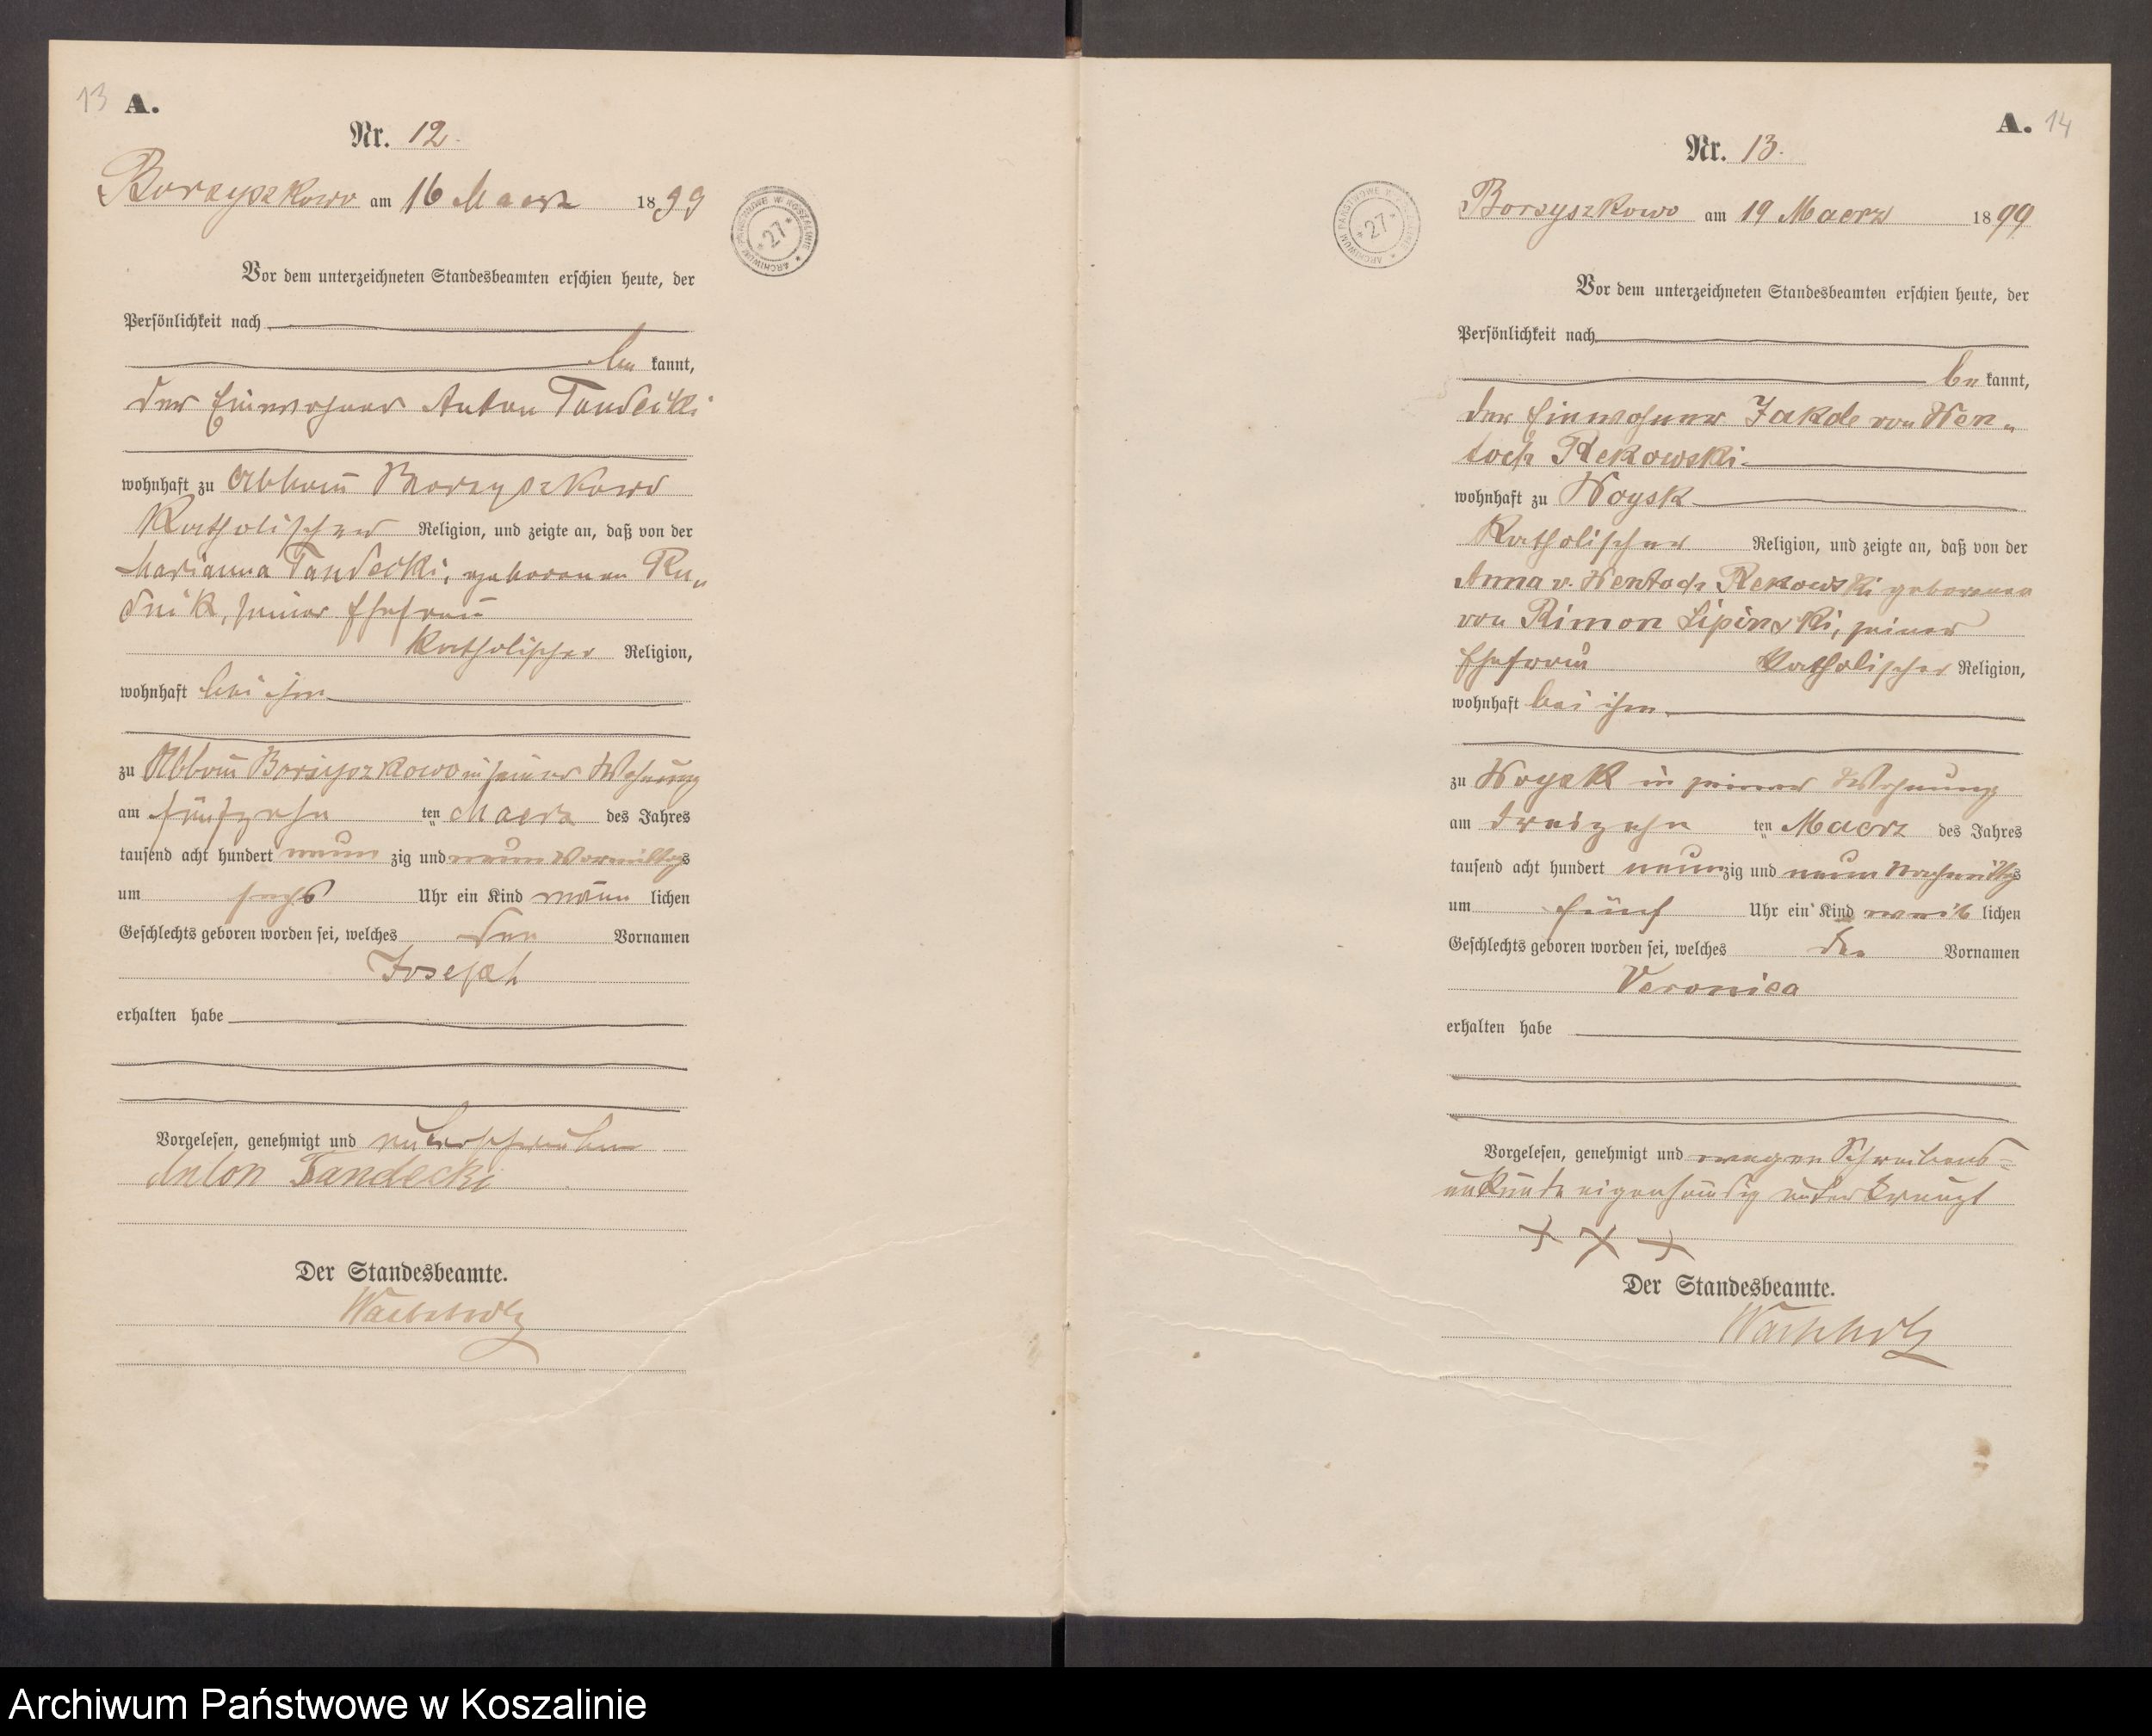 13 A.
Nr. 12.
Borzyszkowo am 16 Maerz 1899
ARCHIWUM PAŃSTWOWE W KOSZALINIE * 27 *
Vor dem unterzeichneten Standesbeamten erschien heute, der
Persönlichkeit nach
be kannt,
der Einwohner Anton Tandecki
wohnhaft zu Abbau Borzyszkowo
Katholischer Religion, und zeigte an, daß von der
Marianna Tandecki, geborenen Ru„
dnik, seiner Ehefrau
Katholischer Religion,
wohnhaft bei ihm
zu Abbau Borzyszkowo in seiner Wohnung
am fünfzehn ten Maerz des Jahres
tausend acht hundert neun zig und neun Vormittags
um sechs Uhr ein Kind männ lichen
Geschlechts geboren worden sei, welches den Vornamen
Joseph
erhalten habe
Vorgelesen, genehmigt und unterschrieben
Anton Tandecki
Der Standesbeamte.
Wachholz
A. 14
Nr. 13.
Borzyszkowo am 19 Maerz 1899
ARCHIWUM PAŃSTWOWE W KOSZALINIE * 27 *
Vor dem unterzeichneten Standesbeamten erschien heute, der
Persönlichkeit nach
be kannt,
der Einwohner von Wen„
toch Rekowski
wohnhaft zu Woysk
Katholischer Religion, und zeigte an, daß von der
Anna v. Wentoch Rekowski geborenen
von Rimon Lipinski, seiner
Ehefrau Katholischer Religion,
wohnhaft bei ihm
zu Woysk in seiner Wohnung
am dreizehn ten Maerz des Jahres
tausend acht hundert neunzig und neun Nachmittags
um fünf Uhr ein Kind weib lichen
Geschlechts geboren worden sei, welches den Vornamen
Veronica
erhalten habe
Vorgelesen, genehmigt und wegen Schreibens-
unkunde eigenhändig unterkreuzt
+ + +
Der Standesbeamte.
Wachholz
Archiwum Państwowe w Koszalinie